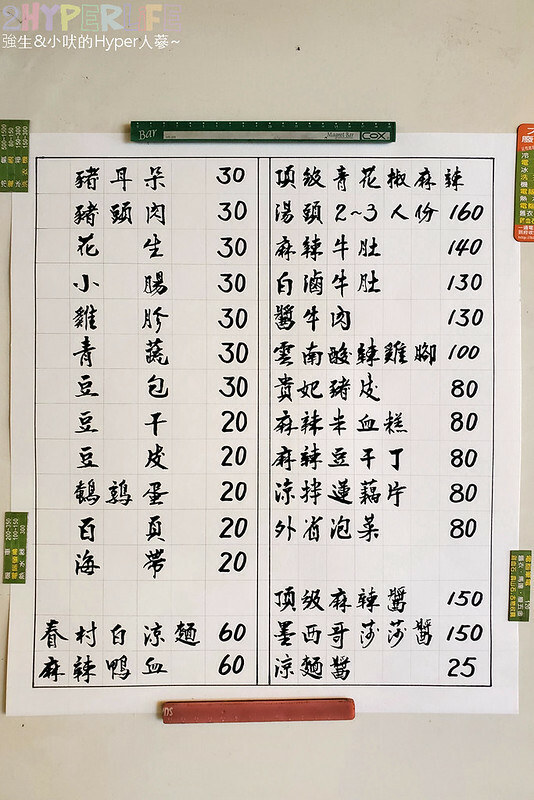 2HYPERLIFE
強生&小吠的Hyper人蔘~
Bar
Magnet Bar
COX
豬耳朵 30
豬頭肉 30
花生 30
小腸 30
雞胗 30
青蔬 30
豆包 30
豆干 20
豆皮 20
鵪鶉蛋 20
百頁 20
海帶 20
眷村白涼麵 60
麻辣鴨血 60
頂級青花椒麻辣
湯頭2~3人份 160
麻辣牛肚 140
白滷牛肚 130
醬牛肉 130
雲南酸辣雞腳 100
貴妃豬皮 80
麻辣米血糕 80
麻辣豆干丁 80
涼拌蓮藕片 80
外省泡菜 80
頂級麻辣醬 150
墨西哥莎莎醬 150
涼麵醬 25